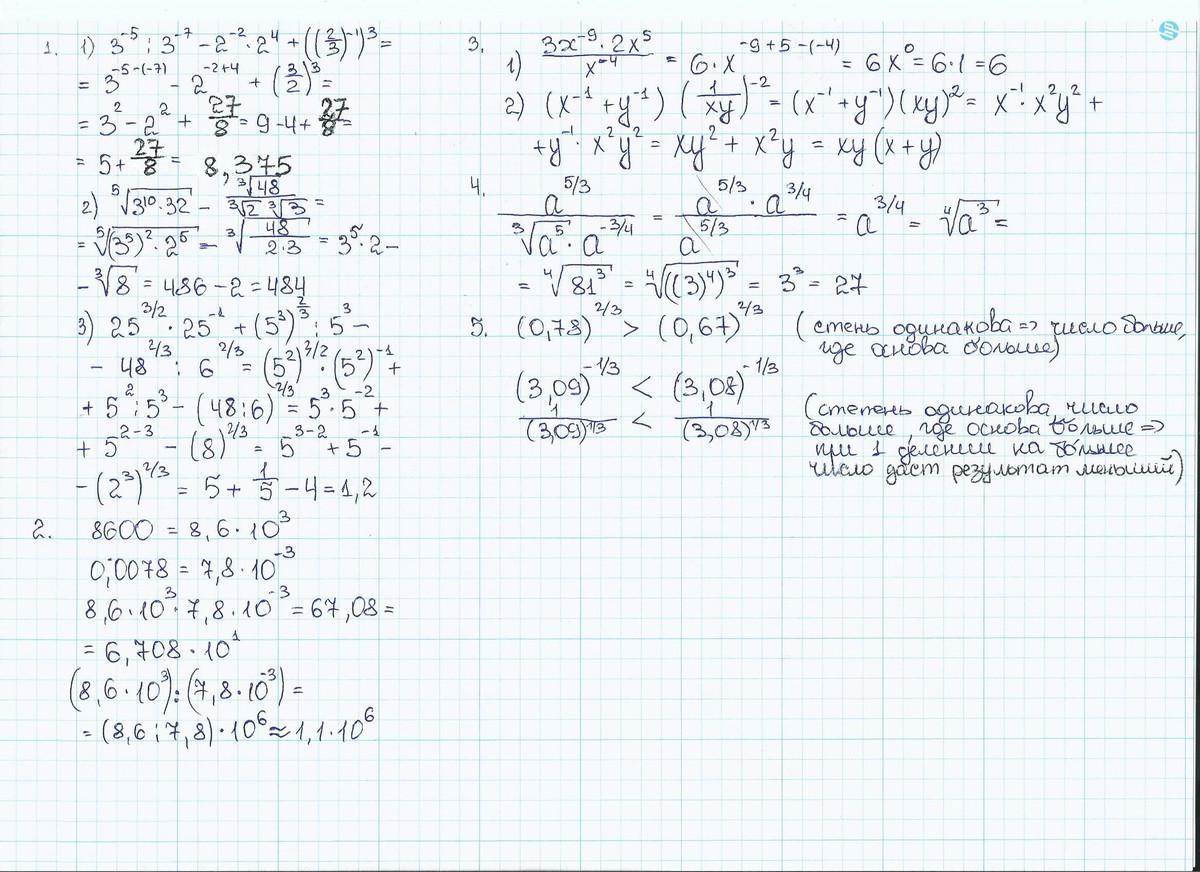 1. 1) 3⁻⁵ : 3⁻⁷ − 2⁻² · 2⁴ + ((2/3)⁻¹)³ =
= 3⁻⁵⁻⁽⁻⁷⁾ − 2⁻²⁺⁴ + (3/2)³ =
= 3² − 2² + 27/8 = 9 − 4 + 27/8 =
= 5 + 27/8 = 8,375
2) ⁵√(3¹⁰ · 32) − ³√48 / (³√2 ³√3) =
= ⁵√((3⁵)² · 2⁵) − ³√(48 / (2 · 3)) = 3⁵ · 2 −
− ³√8 = 486 − 2 = 484
3) 25^(3/2) · 25⁻¹ + (5³)^(2/3) : 5³ −
− 48^(2/3) : 6^(2/3) = (5²)^(3/2) · (5²)⁻¹ +
+ 5² : 5³ − (48 : 6)^(2/3) = 5³ · 5⁻² +
+ 5²⁻³ − (8)^(2/3) = 5³⁻² + 5⁻¹ −
− (2³)^(2/3) = 5 + 1/5 − 4 = 1,2
2. 8600 = 8,6 · 10³
0,0078 = 7,8 · 10⁻³
8,6 · 10³ · 7,8 · 10⁻³ = 67,08 =
= 6,708 · 10¹
(8,6 · 10³) : (7,8 · 10⁻³) =
= (8,6 : 7,8) · 10⁶ ≈ 1,1 · 10⁶
3. 1) 3x⁻⁹ · 2x⁵ / x⁻⁴ = 6 · x^(−9+5−(−4)) = 6x⁰ = 6 · 1 = 6
2) (x⁻¹ + y⁻¹) (1/xy)⁻² = (x⁻¹ + y⁻¹)(xy)² = x⁻¹ · x²y² +
+ y⁻¹ · x²y² = xy² + x²y = xy(x + y)
4. a^(5/3) / (³√a⁵ · a^(−3/4)) = a^(5/3) · a^(3/4) / a^(5/3) = a^(3/4) = ⁴√a³ =
= ⁴√81³ = ⁴√((3)⁴)³ = 3³ = 27
5. (0,78)^(2/3) > (0,67)^(2/3) (стень одинакова => число больше,
где основа больше)
(3,09)^(−1/3) < (3,08)^(−1/3)
1/(3,09)^(1/3) < 1/(3,08)^(1/3) (степень одинакова, число
больше, где основа больше =>
при 1 делении на большее
число даст результат меньший)